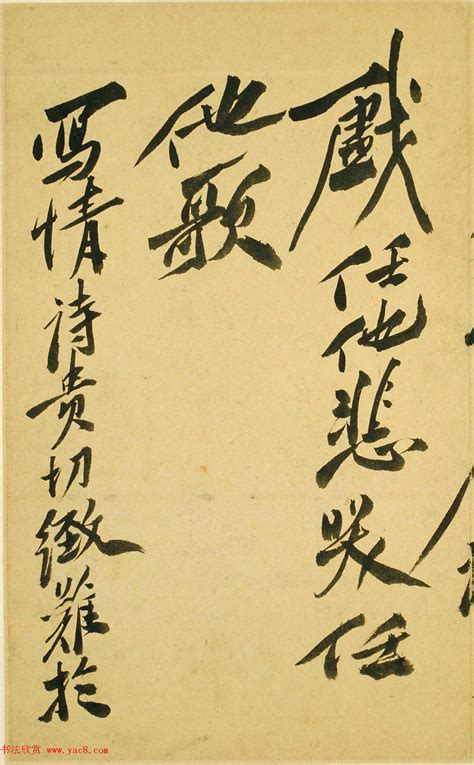 戲任他悲哭任
他歌
寫情诗贵切緻難於
书法欣赏 www.yac8.com